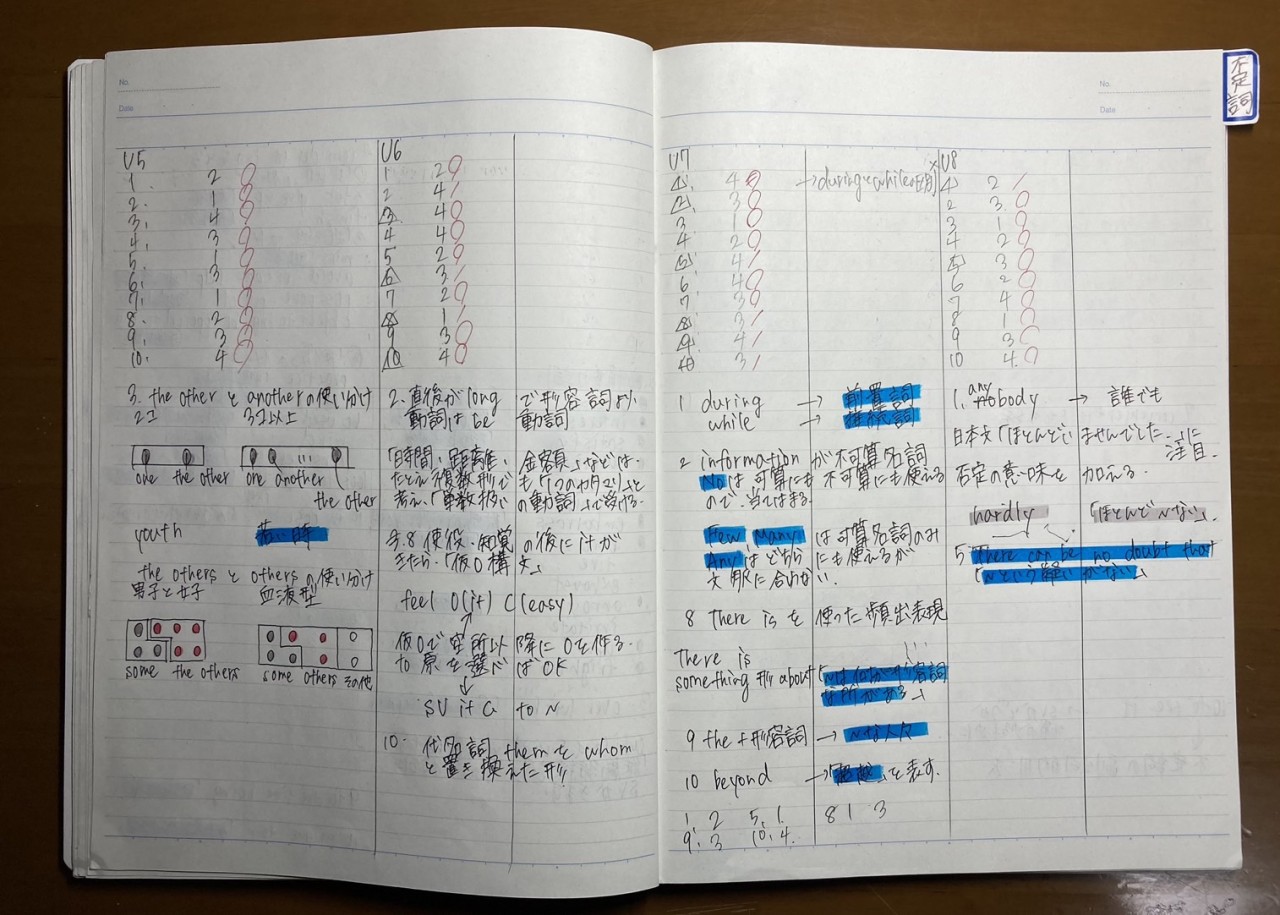 不定詞
No.
Date
No.
Date
U5
1. 2
2. 1
3. 4
4. 3
5. 1
6. 3
7. 1
8. 2
9. 3
10. 4
3. the other と another の使い分け
2コ 3コ以上
one the other one another
the other
youth 若い時
the others と others の使い分け
男子と女子 血液型
some the others some others その他
U6
1 2
2 4
3 4
4 4
5 2
6 3
7 2
8 1
9 3
10 4
2. 直後が long で形容詞より、
動詞は be 動詞
「時間、距離、金額」などは、
たとえ複数形でも「1つのカタマリ」と
考え、「単数扱いの動詞」で受ける。
3.8 使役・知覚の後に it が
きたら、「仮O構文」
feel O(it) C(easy)
仮Oで空所以降にOを作る.
to 原を選べばOK
SV it C to ~
10. 代名詞 them を whom
と置き換えた形
U7
1. 4 → duringとwhileの区別
2. 3
3. 1
4 2
5. 4
6. 4
7. 3
8. 3
9. 4
10 3
1 during → 前置詞
while → 接続詞
2 information が不可算名詞
Noは、可算にも不可算にも使える
ので、当てはまる.
Few Many は可算名詞のみ
Any はどちらにも使えるが
文脈に合わない.
8 There is を使った頻出表現
There is
something 形 about 「~は何だか形容詞
な所がある」
9 the+形容詞 → ~な人々
10 beyond → 「超越」を表す.
1. 2 5. 1. 8 1 3
9. 3 10. 4.
U8
1 2
2 3
3 1
4 2
5 3
6 2
7 4
8 1
9 3
10 4.
1. any nobody → 誰でも
日本文「ほとんどいませんでした.」に
注目.
否定の意味を加える.
hardly 「ほとんど~ない」.
5 There can be no doubt that
「~という疑いがない」